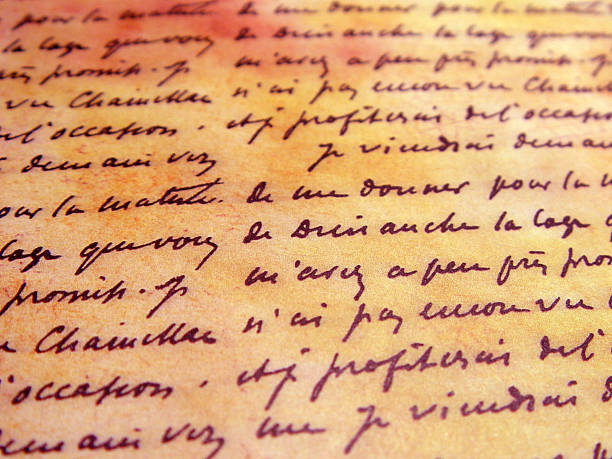 pour la matinée. de me donner pour la matinée
la loge que vous de Dimanche la loge que vous
promis. Je m'avez a peu près promis. Je
vu Chainellar n'ai pas encore vu Chain
de l'occasion. et je profiterai de l'occasion
demain vez je viendrai demain
pour la matinée. de me donner pour la m
loge que vous de Dimanche la loge q
promis. Je m'avez a peu près pro
Chainellar n'ai pas encore vu C
l'occasion. et je profiterai de l'
demain vez me je viendrai d